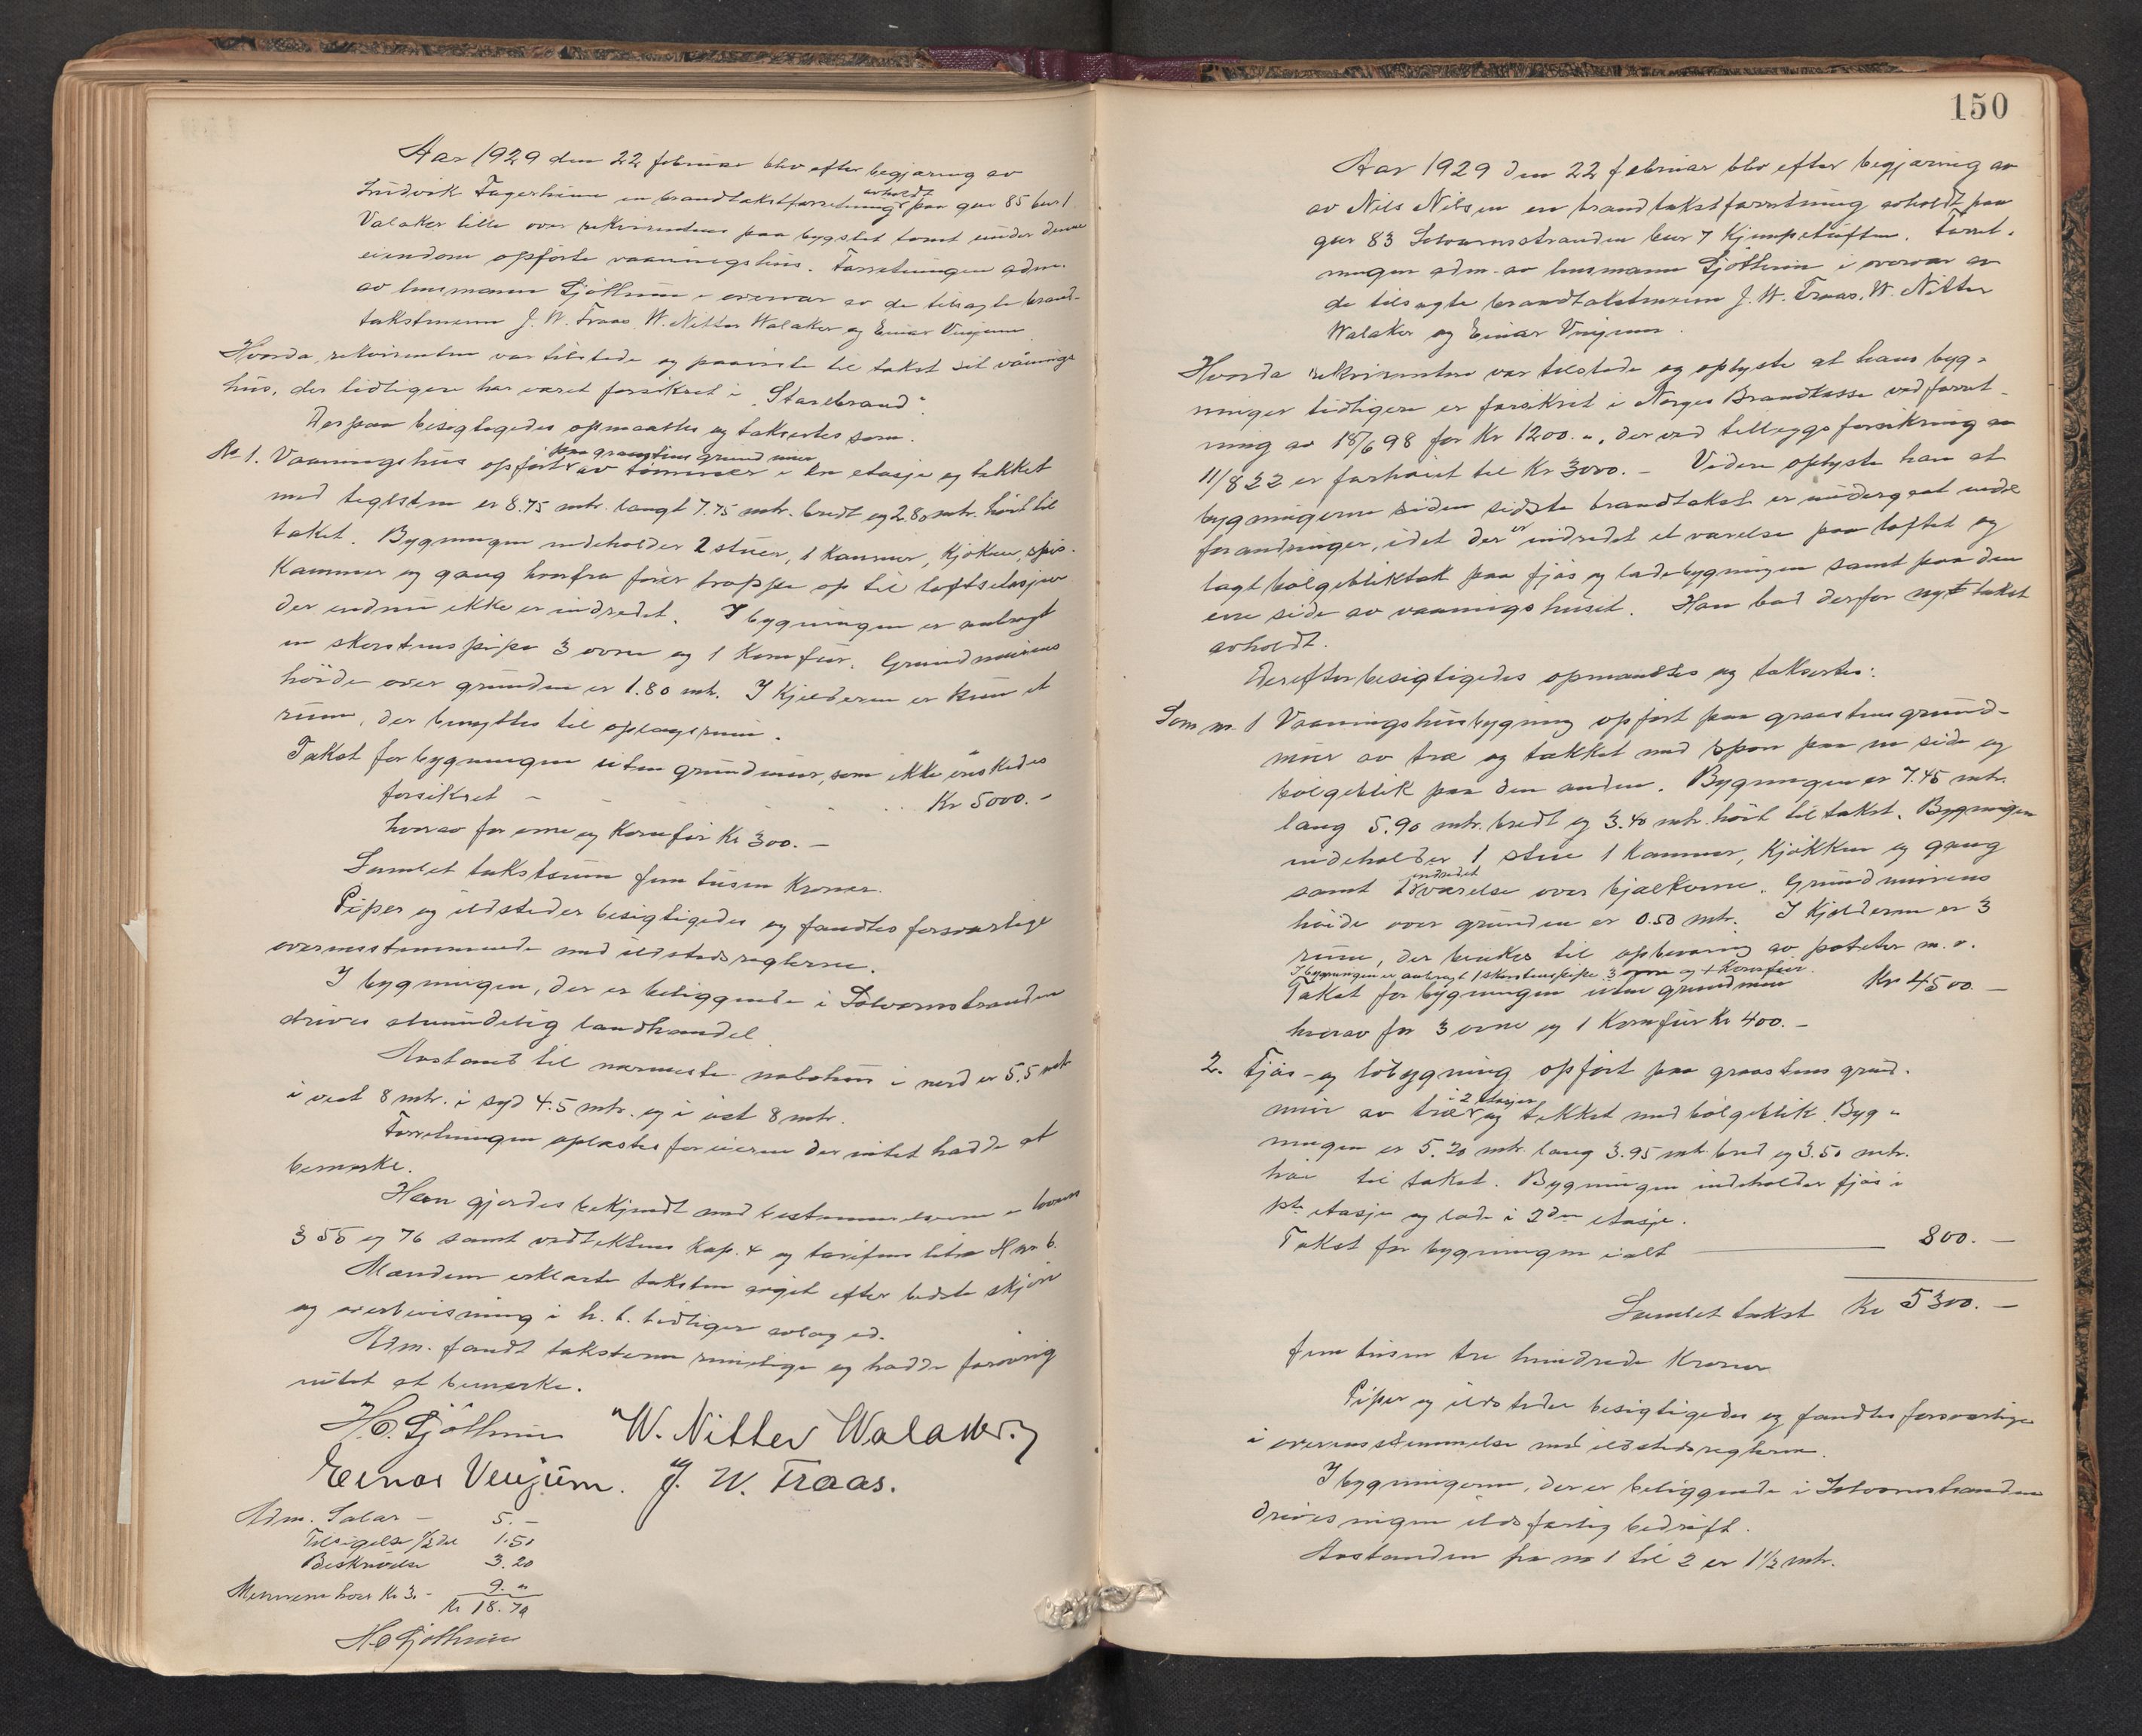 Aar 1929 den 22 februar blev efter begjæring av
Ludvik Fagerheim en brandtakstforretning avholdt paa gnr 85 bnr 1
Valaker lille over rekvirentens paa bygslet tomt under denne
eiendom opførte vaaningshus. Forretningen adm.
av lensmann Gjøthun i overvær av de tilsagte brand-
takstmenn J. W. Traas, W. Nitter Walaker og Einar Venjum
Hvorda rekvirenten var tilstede og paaviste til takst sit vånings
hus, der tidligere har været forsikret i "Storebrand".
Derpaa besigtigedes opmaaltes og taksertes som.
No 1. Vaaningshus opført paa graastens grundmur av tømmer i en etasje og tækket
med teglsten er 8.75 mtr. langt 7.75 mtr. bredt og 2.80 mtr. høit til
taket. Bygningen indeholder 2 stuer, 1 kammer, kjøkken, spis-
kammer og gang hvorfra fører trappe op til loftsetasjen
der endnu ikke er indredet. I bygningen er anbragt
en skorstenspipe 3 ovne og 1 komfur. Grundmurens
høide over grunden er 1.80 mtr. I kjelderen er kun et
rum, der benyttes til oplagsrum.
Takst for bygningen uten grundmur, som ikke ønskedes
forsikret - - - - - Kr 5000.-
hvorav for ovne og komfur Kr 300.-
Samlet takstsum fem tusen kroner.
Piper og ildsteder besigtigedes og fandtes forsvarlige
overensstemmende med ildstedsreglerne.
I bygningen, der er beliggende i Solvornstranden
drives almindelig landhandel.
Avstand til nærmeste nabohus i nord er 5,5 mtr
i vest 8 mtr. i syd 4.5 mtr. og i øst 8 mtr.
Forretningen oplæstes for eieren der intet hadde at
bemerke.
Han gjordes bekjendt med bestemmelserne i lovens
§ 55 og 76 samt vedtektens kap. 4 og tarifens litra H nr 6.
Mændene erklærte taksten avgit efter bedste skjøn
og overbevisning i h. t. tidligere avlag ed.
Adm. fandt taksterne rimelige og hadde forøvrig
intet at bemerke.
H.O. Gjøthun W. Nitter Walaker.
Einar Venjum. J. W. Traas.
Adm. Salær - 5.-
Tilsigelse 1/2 del 1.50
Beskrivelse 3.20
Mennene hver Kr 3.- 9.-
Kr 18.70
H.O. Gjøthun
150
Aar 1929 den 22 februar blev efter begjæring av
av Nils Nilsen en brandtakstforretning avholdt paa
gnr 83 Solvornsstranden bnr 7 Kjempetuften. Forret-
ningen adm. av lensmann Gjøthun i overvær av
de tilsagte brandtakstmenn J. W. Traas, W. Nitter
Walaker og Einar Venjum.
Hvorda rekvirenten var tilstede og oplyste at hans byg-
ninger tidligere er forsikret i Norges Brandkasse ved forret-
ning av 18/6 98 for Kr 1200.-, der ved tilleggsforsikring av
11/8 22 er forhøiet til Kr 3000.- Videre oplyste han at
bygningerne siden sidste brandtakst er undergaat endel
forandringer, idet der er indredet et værelse paa loftet og
lagt bølgebliktak paa fjøs og ladebygningen samt paa den
ene side av vaaningshuset. Han bad derfor nyt takst
avholdt.
Derefter besigtigedes opmaaltes og takseertes:
Som nr. 1 Vaaningshusbygning opført paa graastens grund-
mur av træ og tækket med spon paa en side og
bølgeblik paa den anden. Bygningen er 7.45 mtr.
lang 5.90 mtr. bredt og 3.40 mtr. høit til takst. Bygningen
indeholder 1 stue 1 kammer, kjøkken og gang
samt 1 indredet værelse over bjælkerne. Grundmurens
høide over grunden er 0.50 mtr. I kjelderen er 3
rum, der brukes til opbevaring av poteter m. v.
I bygningen er anbragt 1 skorstenspipe 3 ovne og 1 komfur.
Takst for bygningen uten grundmur Kr 4500.-
hvorav for 3 ovne og 1 komfur Kr 400.-
2. Fjøs- og løbygning opført paa graastens grund-
mur av træ i 2 etasjer og tækket med bølgeblik. Byg-
ningen er 5.20 mtr. lang 3.95 mtr. bred og 3.50 mtr.
høi til takst. Bygningen indeholder fjøs i
1ste etasje og lade i 2den etasje.
Takst for bygningen ialt 800.-
Samlet takst Kr 5300.-
fem tusen tre hundrede kroner
Piper og ildsteder besigtigedes og fandtes forsvarlige
i overensstemmelse med ildstedsreglerne.
I bygningerne, der er beliggende i Solvornstranden
drives ingen ildsfarlig bedrift.
Avstanden fra nr 1 til 2 er 1 1/2 mtr.